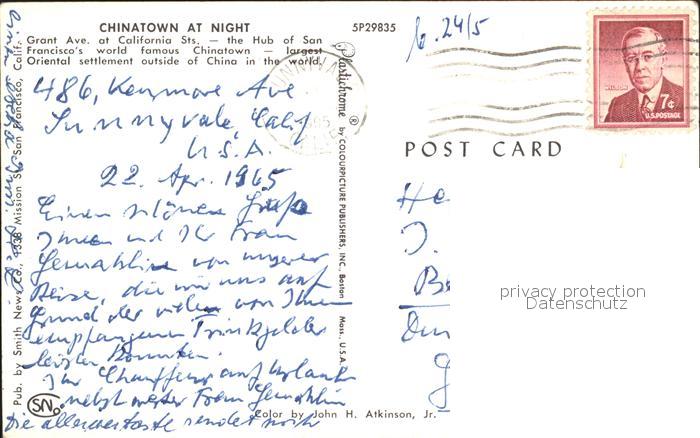 CHINATOWN AT NIGHT
5P29835
Grant Ave. at California Sts. — the Hub of San
Francisco's world famous Chinatown — largest
Oriental settlement outside of China in the world.
486, Kenmore Ave
Sunnyvale, Calif
U.S.A.
22. Apr. 1965
Einen schönen Gruß
Ihnen und Ihr Frau
Gemahlin von unserer
Reise, die wir uns auf
Grund der vielen von Ihnen
empfangenen Trinkgelder
leisten konnten.
Ihr Chauffeur auf Urlaub
nebst werter Frau Gemahlin
Die allerwerteste sendet mich
Pub. by Smith News Co., Mission St., San Francisco, Calif.
SN
Color by John H. Atkinson, Jr.
Plastichrome ® by COLOURPICTURE PUBLISHERS, INC., Boston Mass., U.S.A.
6. 24/5
WILSON
7¢
U.S. POSTAGE
POST CARD
He
J.
Be
privacy protection
Datenschutz